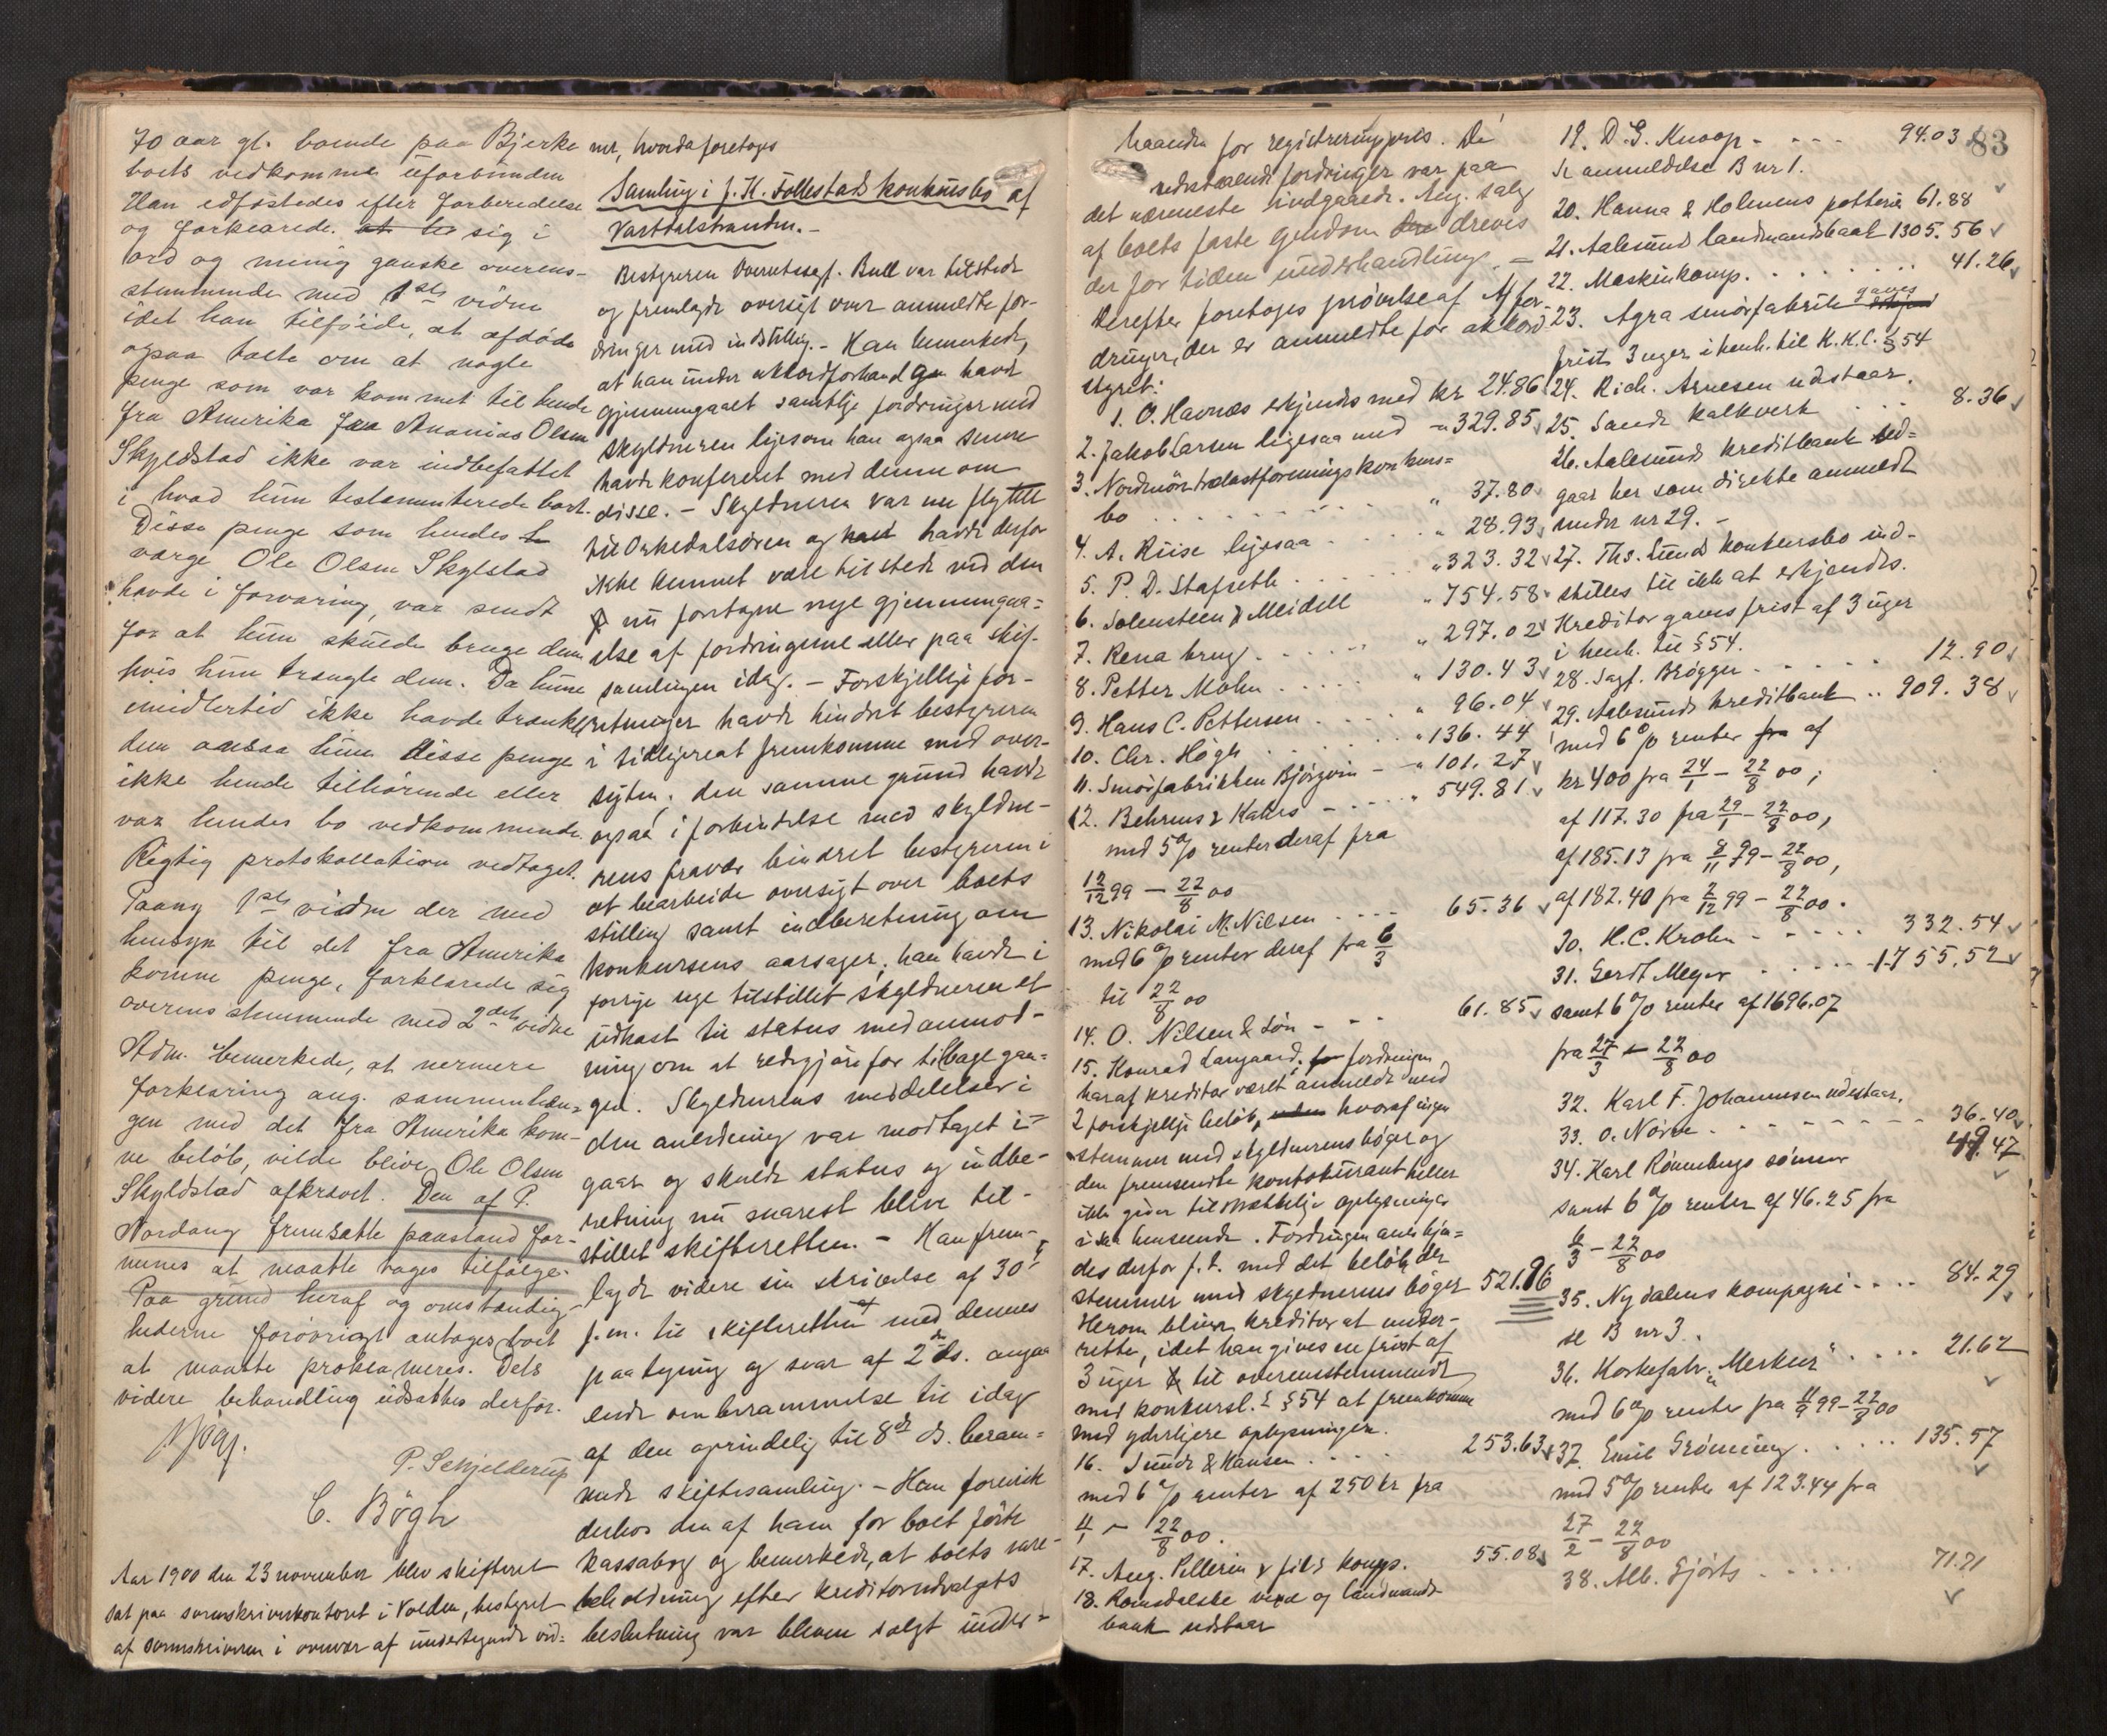 70 aar gl. boende paa Bjerke
boets vedkomme uforbunden
Han edfæstedes efter forberedelse
og forklarede at h sig i
ord og mening ganske overens-
stemmende med 1ste vidne
idet han tilføide, at afdøde
ogsaa talte om at nogle
penge som var kommet til hende
fra Amerika fra Ananias Olsen
Skyldstad ikke var indbefattet
i hvad hun testamenterede bort.
Disse penge som hendes
værge Ole Olsen Skylstad
havde i forvaring, var sendt
for at hun skulde bruge dem
hvis hun trængte dem. Da hun
imidlertid ikke havde trænkt
dem ansaa hun disse penge
ikke hende tilhørende eller
var hendes bo vedkommende.
Rigtig protokollation vedtaget.
Paany 1ste vidne der med
hensyn til det fra Amerika
komne penge, forklarede sig
overensstemmende med 2det vidne
Adm. bemerkede, at nermere
forklaring ang. sammenhæn-
gen med det fra Amerika kom-
ne beløb, vilde blive Ole Olsen
Skyldstad afkrævet. Den af P.
Nordang fremsatte paastand for-
menes at maatte tages tilfølge.
Paa grund heraf og omstændig-
hederne forøvrigt antages boet
at maatte proklameres. Dets
videre behandling udsattes derfor.
P. Schjelderup
C. Bögh
Aar 1900 den 23 november blev skifteret
sat paa sorenskriverkontoret i Volden, bestyret
af sorenskriveren i overvær af undertegnede vid-
ner, hvorda foretoges
Samling i J. K. Follestads konkursbo af
Vartdalstranden.-
Bestyreren Overretssagf. Bull var tilstede
og fremlagde oversigt over anmeldte for-
dringer med indstilling.- Han bemerkede,
at han under akkordforhandlgen havde
gjennemgaaet samtlige fordringer med
skyldneren ligesom han ogsaa senere
havde konfereret med denne om
disse. - Skyldneren var nu flyttet
til Orkedalsøren og havde derfor
ikke kunnet være tilstede ved den
nu foretagne nye gjennemgaa-
else af fordringerne eller paa skif-
samlingen idag. - Forskjellige for-
retninger havde hindret bestyreren
i tidligere at fremkomme med over-
sigten; den samme grund havde
ogsaa i forbindelse med skyldne-
rens fravær hindret bestyreren i
at bearbeide oversigt over boets
stilling samt indberetning om
konkursens aarsager; han havde i
forrige uge tilstillet skyldneren et
udkast til status med anmod-
ning om at redegjøre for tilbagegan-
gen. Skyldnerens meddelelser i
den anledning var modtaget i-
gaar og skulde status og indbe-
retning nu snarest blive til-
stillet skifteretten. - Han frem-
lagde videre sin skrivelse af 30te
f.m. til skifteretten med dennes
paategning og svar af 2den ds. angaa
ende omberammelse til idag
af den oprindelig til 8de ds. beram-
mede skiftesamling. - Han foreviste
derhos den af ham for boet førte
kassabog og bemerkede, at boets vare-
beholdning efter kreditorudvalgets
beslutning var bleven solgt under-
83
haanden for registreringspris. De
udestaaende fordringer var paa
det nærmeste indgaaede. Ang. salg
af boets faste eiendom drives
der for tiden underhandling. -
Derefter foretoges prøvelse af for-
dringer, der er anmeldte for akkord-
styret:
1. O. Havnæs erkjendes med kr 24.86
2. Jakob Larsen ligesaa med -"329.85
3. Nordmøre trælastforenings konkurs-
bo . . . . " 37.80
4. A. Riise ligesaa . . . " 28.93
5. P. D. Stafseth . . . "323.32
6. Solensteen & Meidell "754.58
7. Rena brug . . . " 297.02
8. Petter Mohn . . . " 130.43
9. Hans C. Pettersen . . . " 96.04
10. Chr. Högh . . . "136.44
11. Smørfabrikken Björgvin - "101.27
12. Behrens & Kahrs - . . . " 549.81
med 5% renter deraf fra
12/12 99 - 22/8 00
13. Nikolai M. Nilsen . . . 65.36
med 6% renter deraf fra 6/3
til 22/8 00
14. O. Nilsen & Søn - - - 61.85
15. Konrad Langaard; fordringen
har af kreditor været anmeldt med
2 forskjellige beløb, hvoraf ingen
stemmer med skyldnerens bøger og
den fremsendte kontokurant heller
ikke giver tilstrækkelige oplysninger
i saa henseende. Fordringen anerkjen-
des derfor f.t. med det beløb, der
stemmer med skyldnerens bøger 521.96
Herom bliver kreditor at under-
rette, idet han gives en frist af
3 uger til overensstemmende
med konkursl.s § 54 at fremkomme
med yderligere oplysninger.
16. Sunde & Hansen . . . 253.63
med 6% renter af 250 kr fra
4/1 - 22/8 00.
17. Aug. Pellerin & fils komp. 55.08
18. Romsdalske vexel og landmands-
bank udstaar
19. D. G. Knoop - - - - 94.03
se anmeldelse B nr 1.
20. Hanna & Holmens potteri 61.88
21. Aalesunds landmandsbank 1305.56
22. Maskinkomp. . . . . 41.26
23. Agra smörfabrik gaves
frist 3 uger i henh. til K.K.L. § 54
24. Rich. Arnesen udstaar.
25. Sande kalkverk . . . 8.36
26. Aalesunds kreditbank ud-
gaar her som direkte anmeldt
under nr 29. -
27. Ths. Lunds konkursbo ind-
stilles til ikke at erkjendes.
Kreditor gaves frist af 3 uger
i henh. til § 54.
28. Sagf. Brøgger . . . . 12.90
29. Aalesunds kreditbank .. 909.38
med 6% renter fra af
kr 400 fra 24/1 - 22/8 00;
af 117.30 fra 29/1 - 22/8 00,
af 185.13 fra 8/11 99 - 22/8 00,
af 182.40 fra 2/12 99 - 22/8 00.
30. H. C. Krohn - - - - 332.54
31. Gerdt Meyer . . . . 1755.52
samt 6% renter af 1696.07
fra 27/3 - 22/8 00
32. Karl F. Johannesen udstaar.
33. O. Nörve . - - - - 36.40
34. Karl Rønnebergs sønner 49.47
samt 6% renter af 46.25 fra
6/3 - 22/8 00
35. Nydalens kompagni . . . 84.29
se B nr 3.
36. Korkefabr. "Merkur" . . . 21.62
med 6% renter fra 11/9 99 - 22/8 00
37. Emil Grönning . . . . 135.57
med 5% renter af 123.44 fra
27/2 - 22/8 00
38. Alb. Gjörts . . . . 71.71